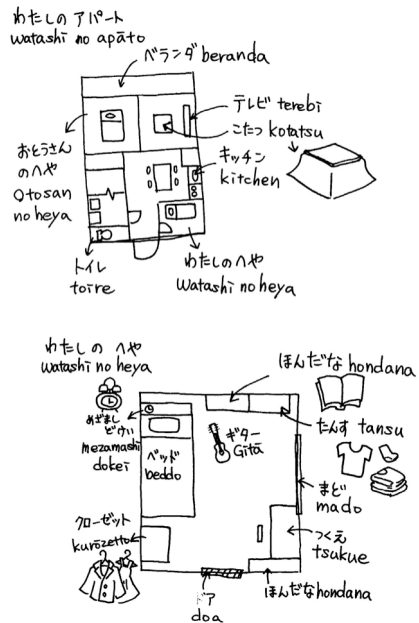 わたしの アパート
watashi no apāto
ベランダ beranda
テレビ terebi
こたつ kotatsu
おとうさん
のへや
Otosan
no heya
キッチン
kitchen
トイレ
toire
わたしのへや
watashi no heya
わたしの へや
watashi no heya
ほんだな hondana
たんす tansu
めざまし
どけい
mezamashi
dokei
ベッド
beddo
ギター
Gitā
まど
mado
つくえ
tsukue
クローゼット
kurōzetto
ドア
doa
ほんだな hondana